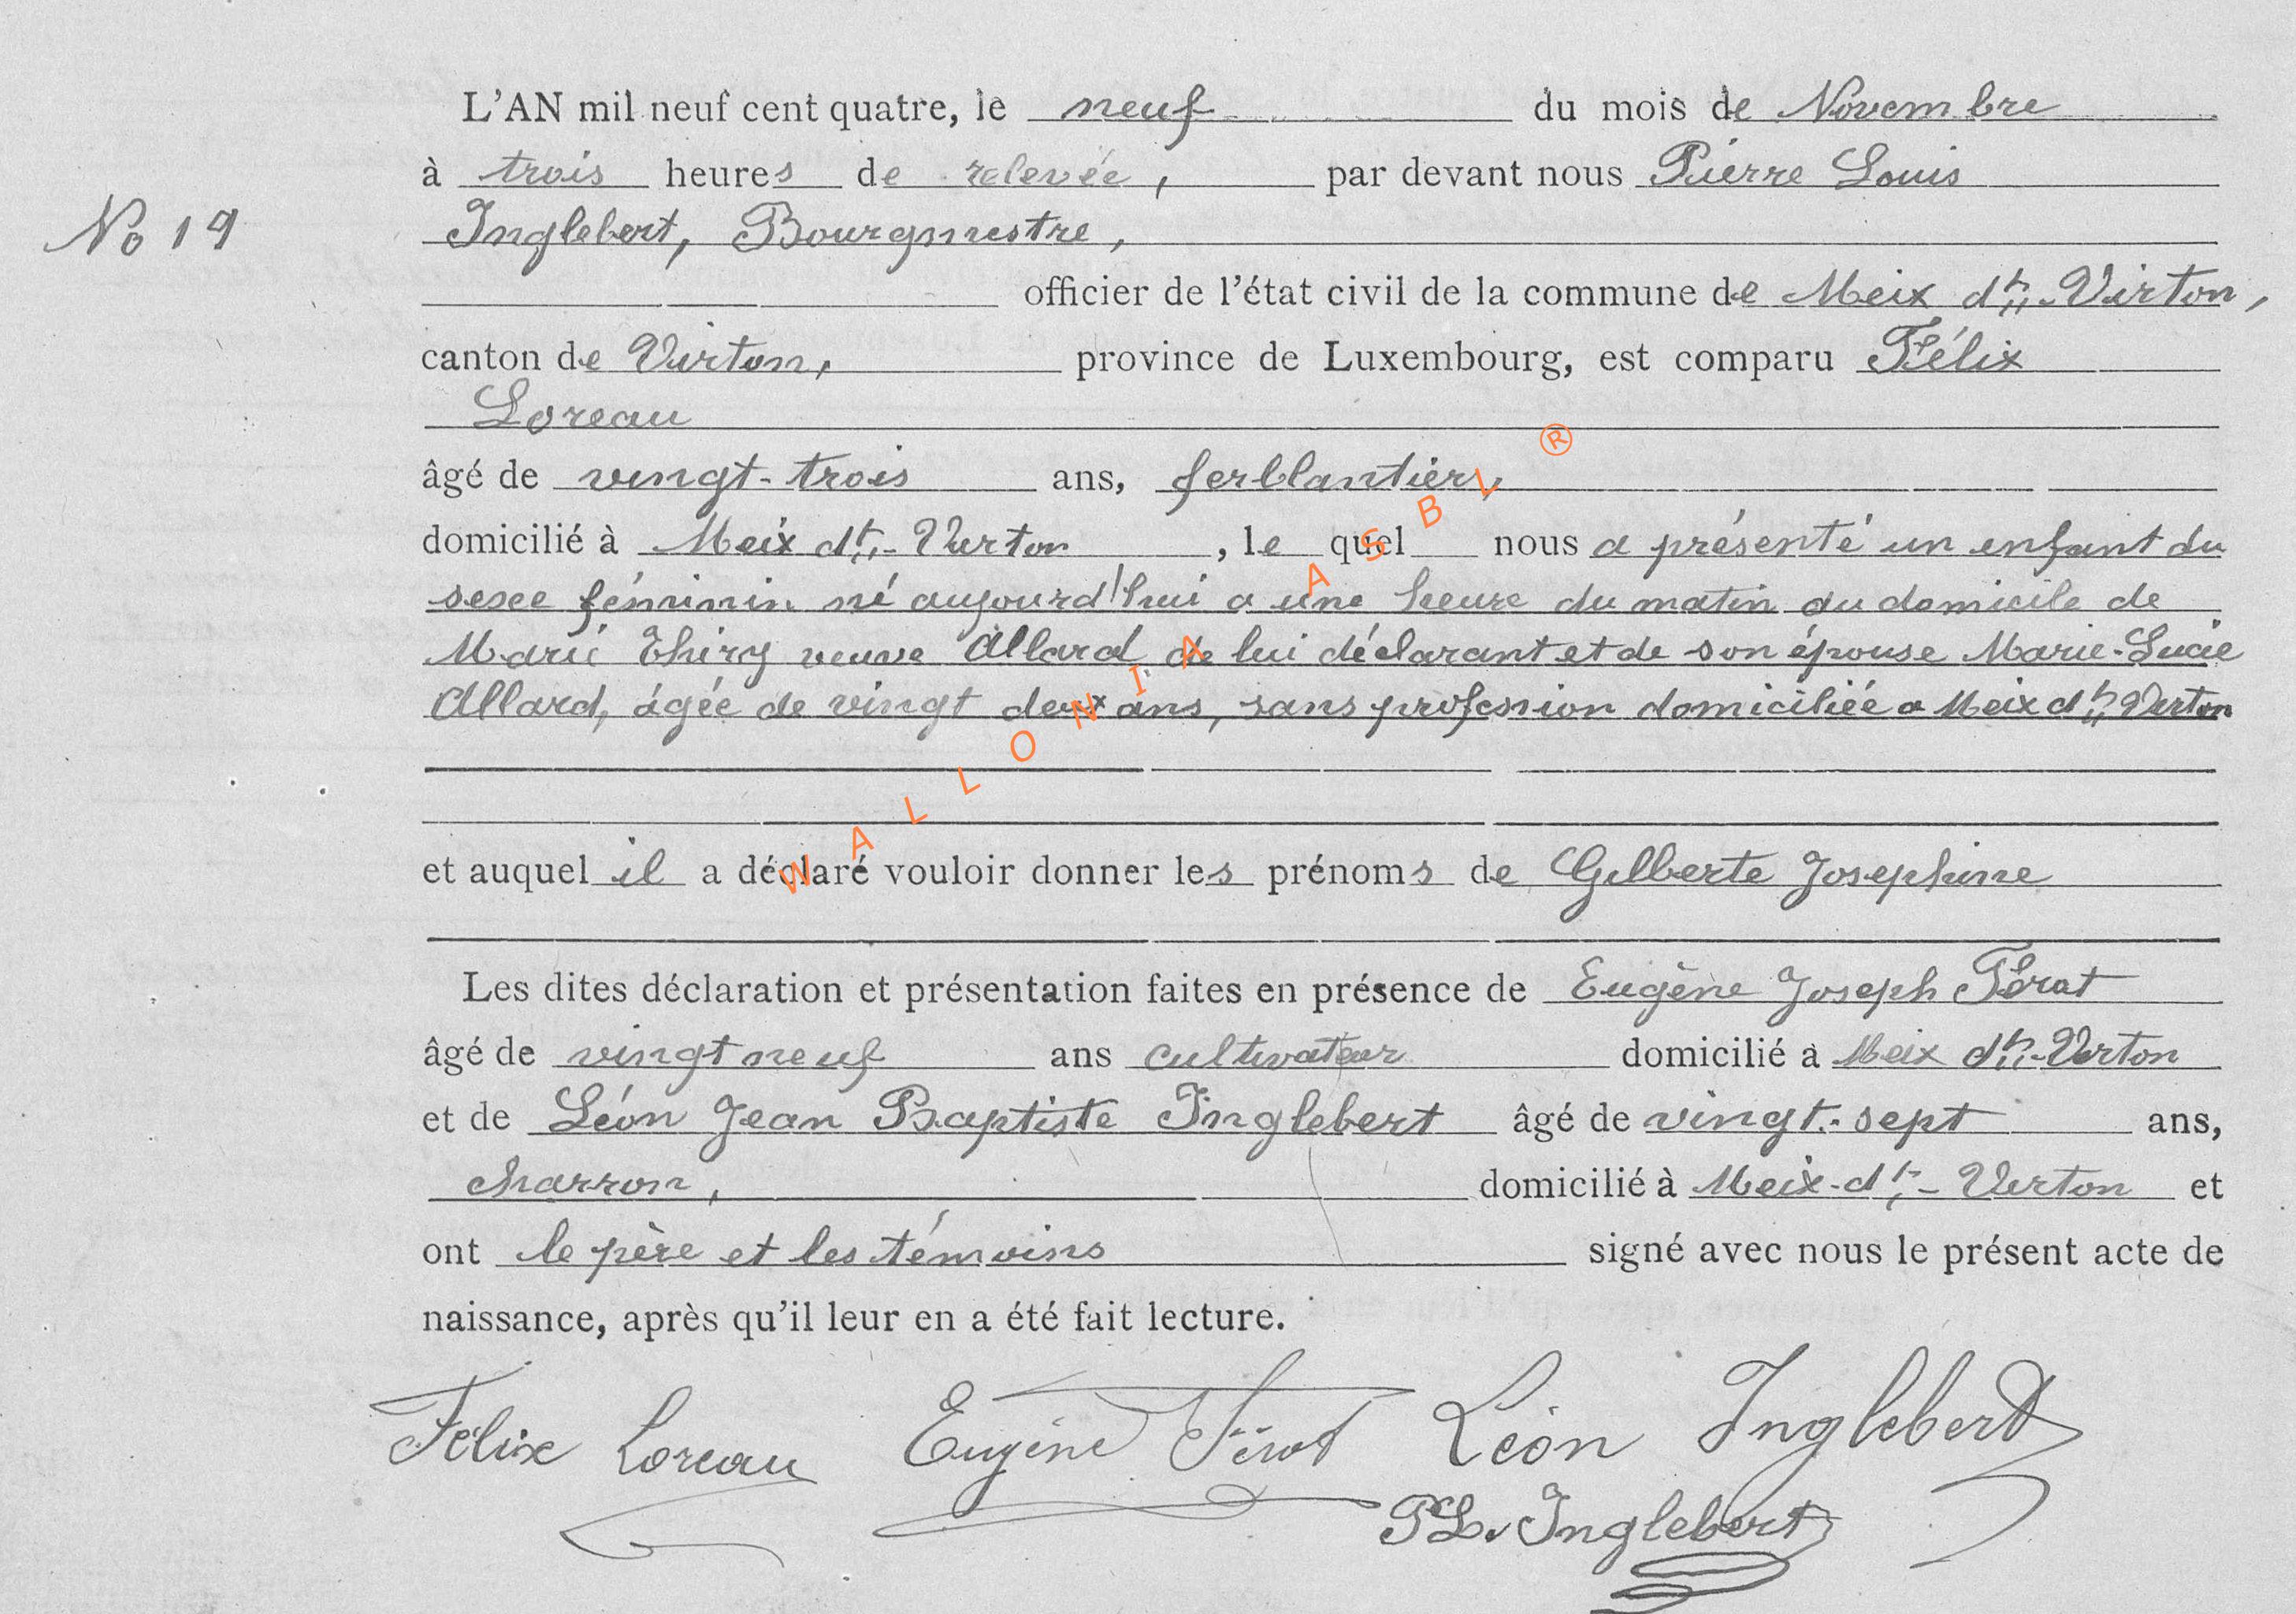 L'AN mil neuf cent quatre, le neuf du mois de Novembre
à trois heures de relevée, par devant nous Pierre Louis
No 19
Inglebert, Bourgmestre,
officier de l'état civil de la commune de Meix dt-Virton,
canton de Virton, province de Luxembourg, est comparu Félix
Loreau
âgé de vingt-trois ans, ferblantier,
domicilié à Meix dt-Virton, le quel nous a présenté un enfant du
sexe féminin né aujourd'hui a une heure du matin au domicile de
Marie Thiry veuve Allard, de lui déclarant et de son épouse Marie-Lucie
Allard, âgée de vingt deux ans, sans profession domiciliée a Meix dt Virton
et auquel il a déclaré vouloir donner les prénoms de Gilberte Josephine
Les dites déclaration et présentation faites en présence de Eugène Joseph
âgé de vingt neuf ans cultivateur domicilié à Meix dt-Virton
et de Léon Jean Baptiste Inglebert âgé de vingt-sept ans,
charron, domicilié à Meix-dt-Virton et
ont le père et les témoins signé avec nous le présent acte de
naissance, après qu'il leur en a été fait lecture.
Félix Loreau Eugène Léon Inglebert
PL. Inglebert
WALLONIA ASBL ®